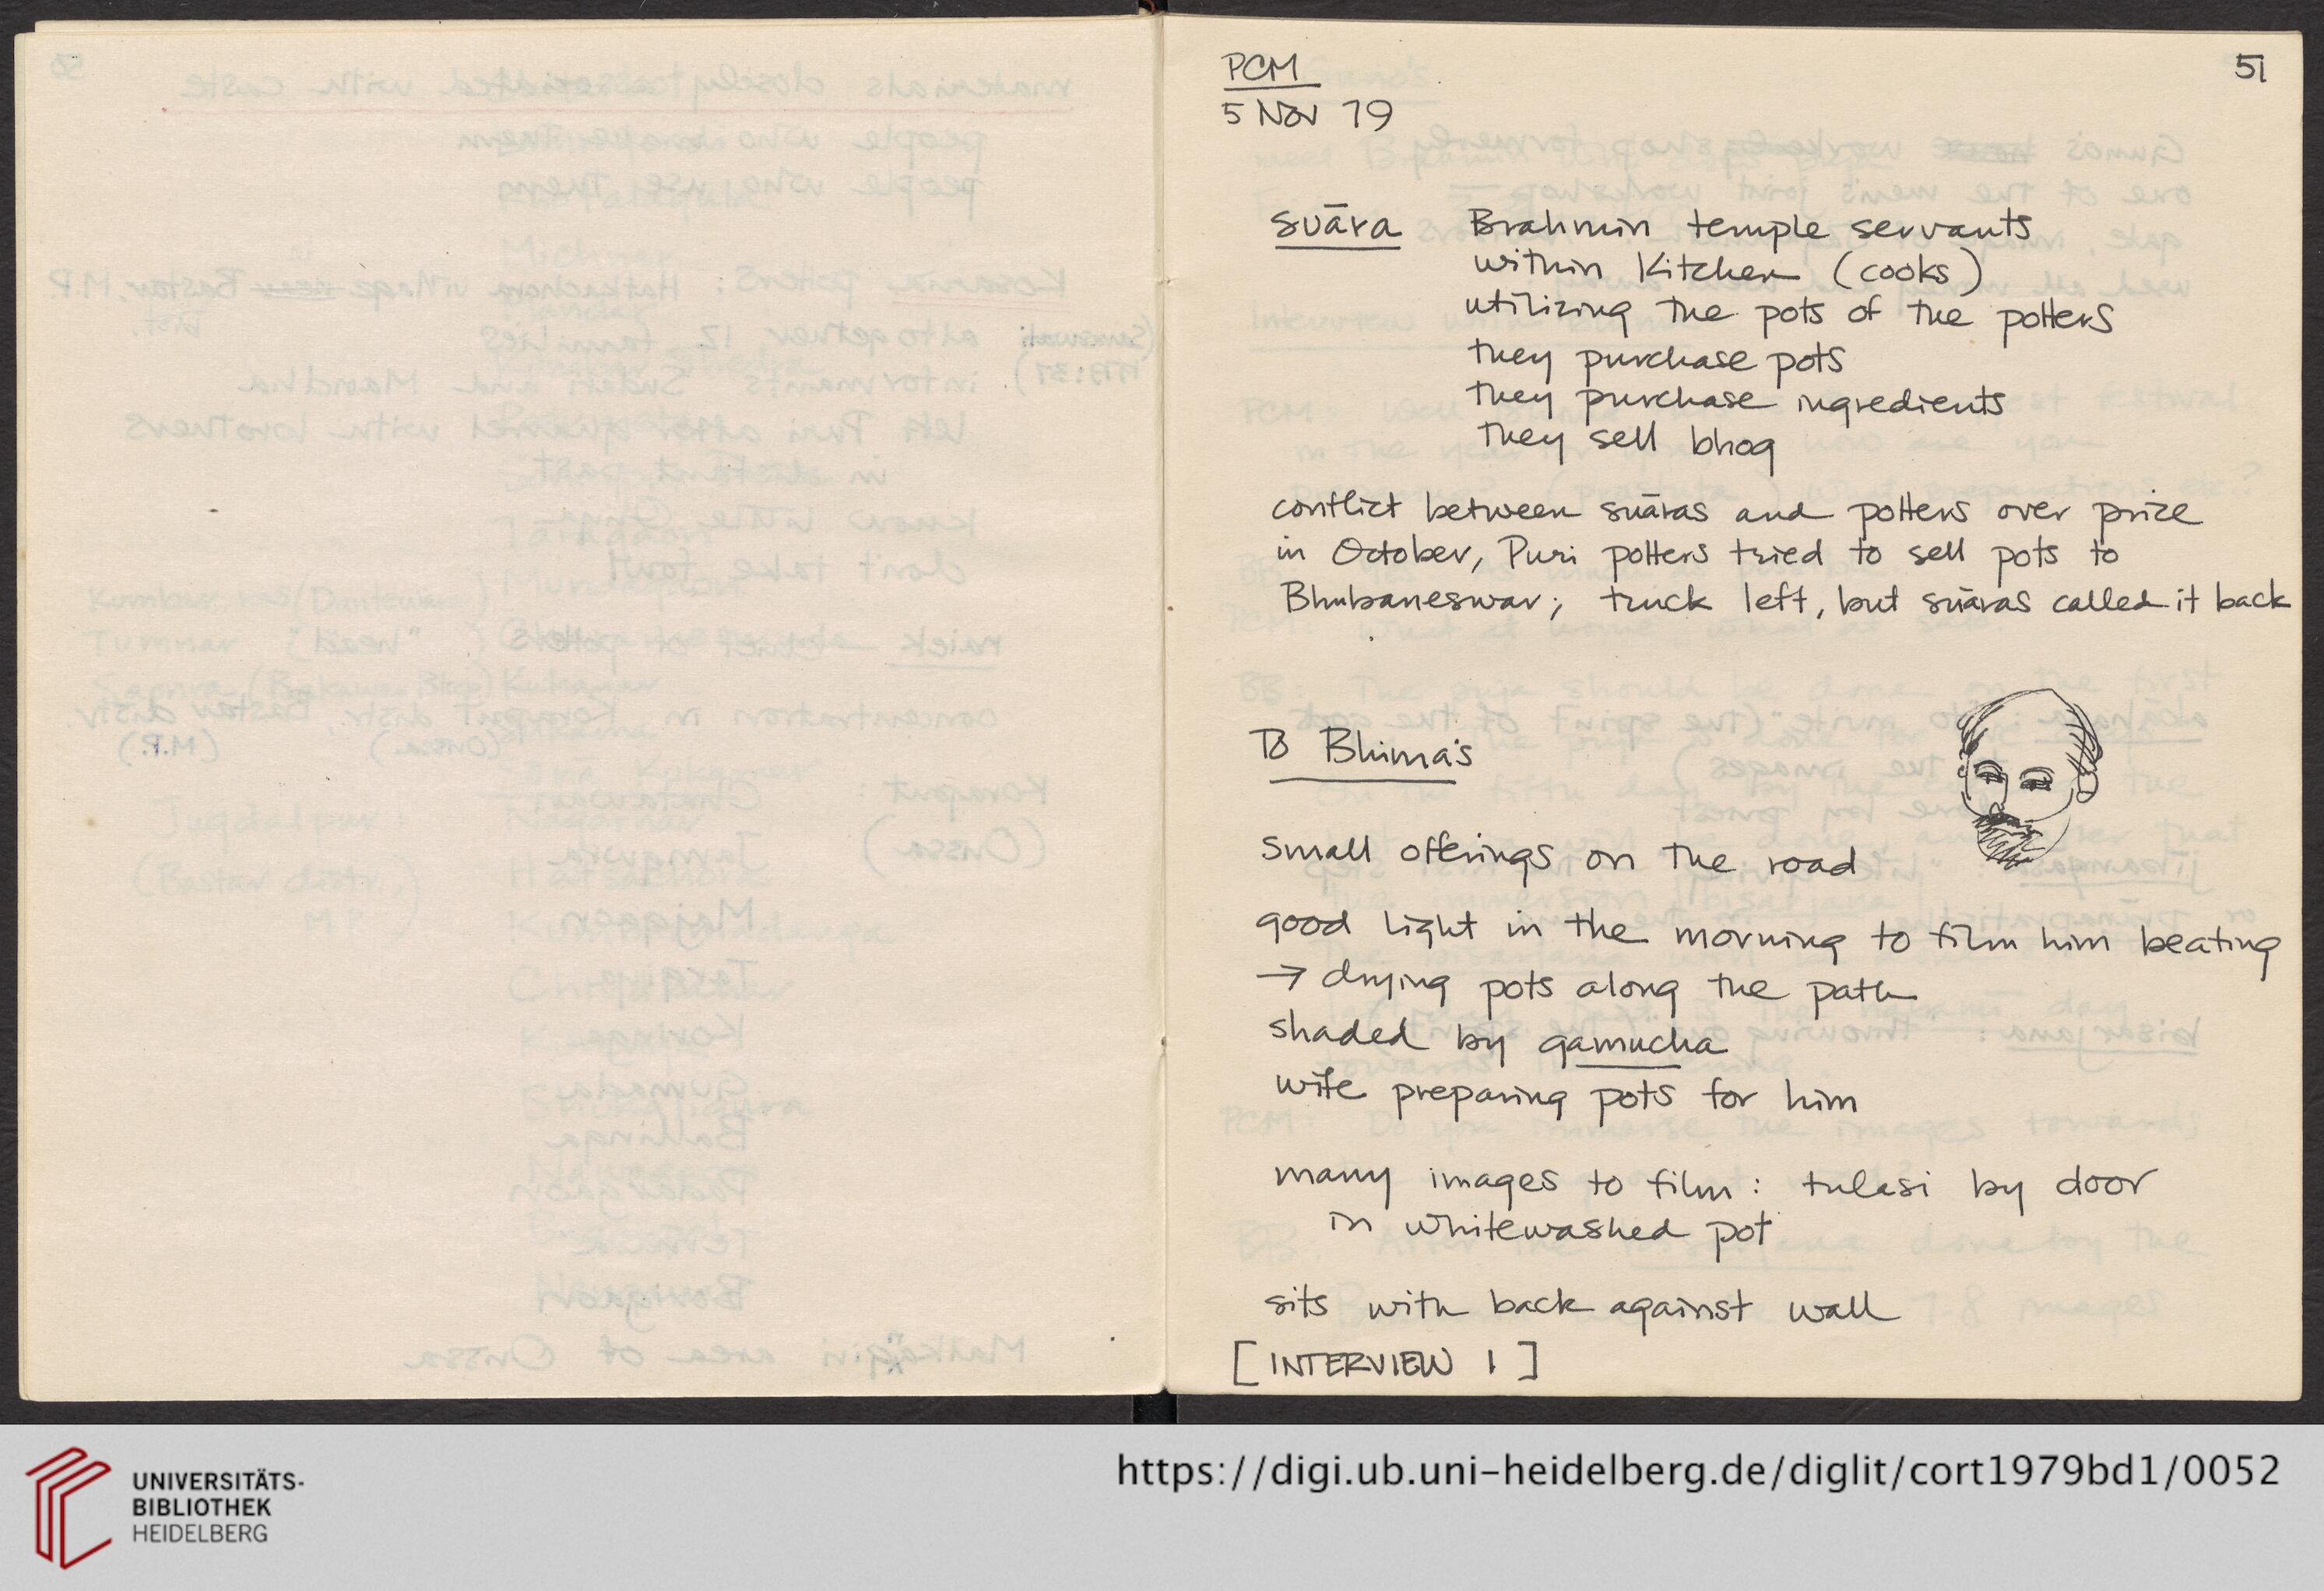 PCM
51
5 Nov 79
suāra Brahmin temple servants
within kitchen (cooks)
utilizing the pots of the potters
they purchase pots
they purchase ingredients
they sell bhog
conflict between suāras and potters over price
in October, Puri potters tried to sell pots to
Bhubaneswar; truck left, but suāras called it back
To Bhima's
small offerings on the road
good light in the morning to film him beating
→ drying pots along the path
shaded by gamucha
wife preparing pots for him
many images to film: tulasi by door
in whitewashed pot
sits with back against wall
[INTERVIEW 1]
UNIVERSITÄTS-
BIBLIOTHEK
HEIDELBERG
https://digi.ub.uni-heidelberg.de/diglit/cort1979bd1/0052